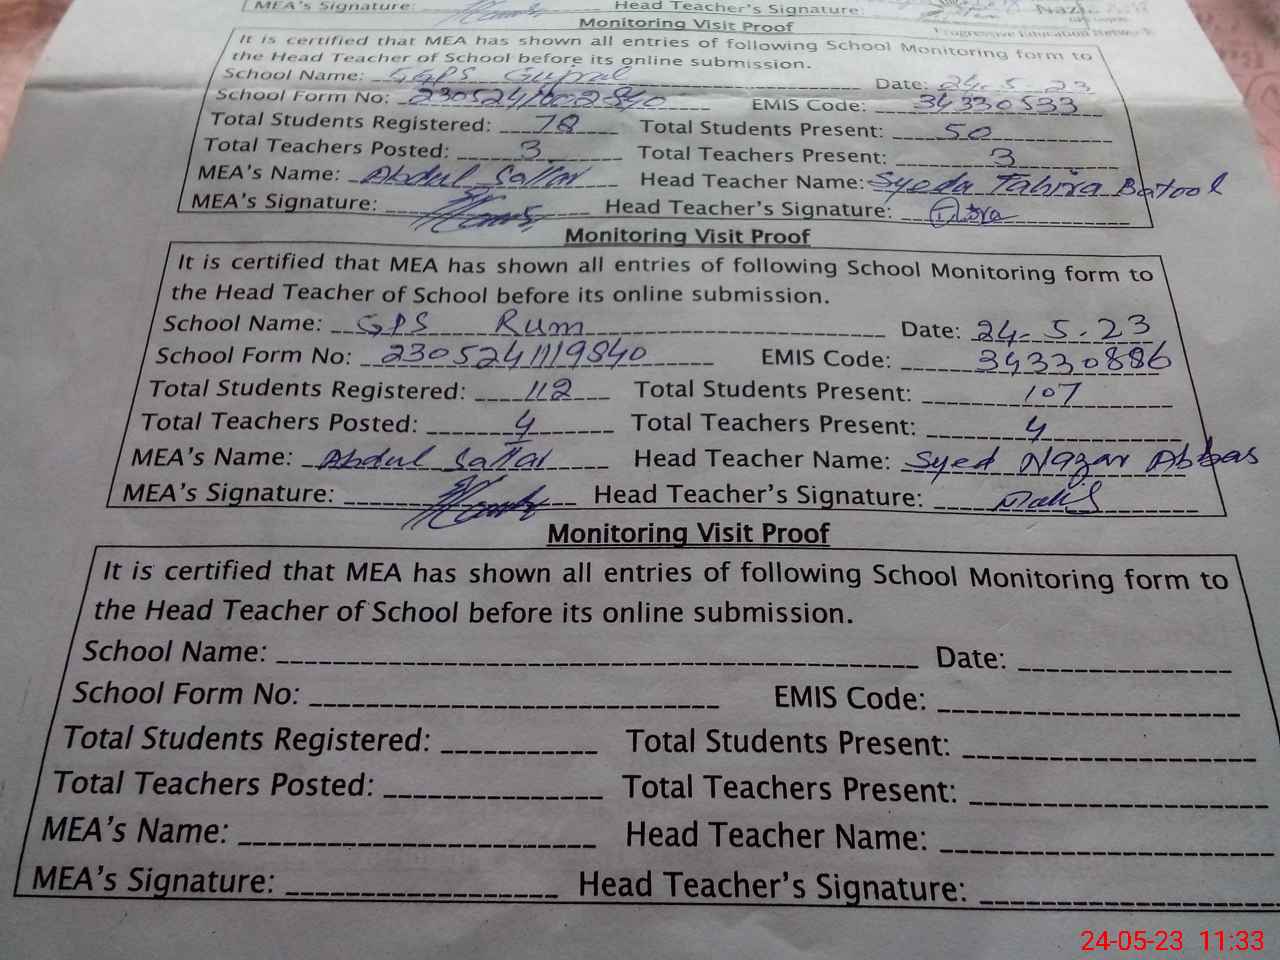 MEA's Signature: Head Teacher's Signature:
Monitoring Visit Proof
It is certified that MEA has shown all entries of following School Monitoring form to
the Head Teacher of School before its online submission.
School Name: GGPS Gujral Date: 24.5.23
School Form No: EMIS Code: 34330533
Total Students Registered: 78 Total Students Present: 50
Total Teachers Posted: 3 Total Teachers Present: 3
MEA's Name: Abdul Sattar Head Teacher Name: Syeda Tahira Batool
MEA's Signature: Head Teacher's Signature:
Monitoring Visit Proof
It is certified that MEA has shown all entries of following School Monitoring form to
the Head Teacher of School before its online submission.
School Name: GPS Rum Date: 24.5.23
School Form No: 2305241119840 EMIS Code: 34330886
Total Students Registered: 112 Total Students Present: 107
Total Teachers Posted: 4 Total Teachers Present: 4
MEA's Name: Abdul Sattar Head Teacher Name: Syed Nazar Abbas
MEA's Signature: Head Teacher's Signature:
Monitoring Visit Proof
It is certified that MEA has shown all entries of following School Monitoring form to
the Head Teacher of School before its online submission.
School Name: Date:
School Form No: EMIS Code:
Total Students Registered: Total Students Present:
Total Teachers Posted: Total Teachers Present:
MEA's Name: Head Teacher Name:
MEA's Signature: Head Teacher's Signature:
24-05-23 11:33